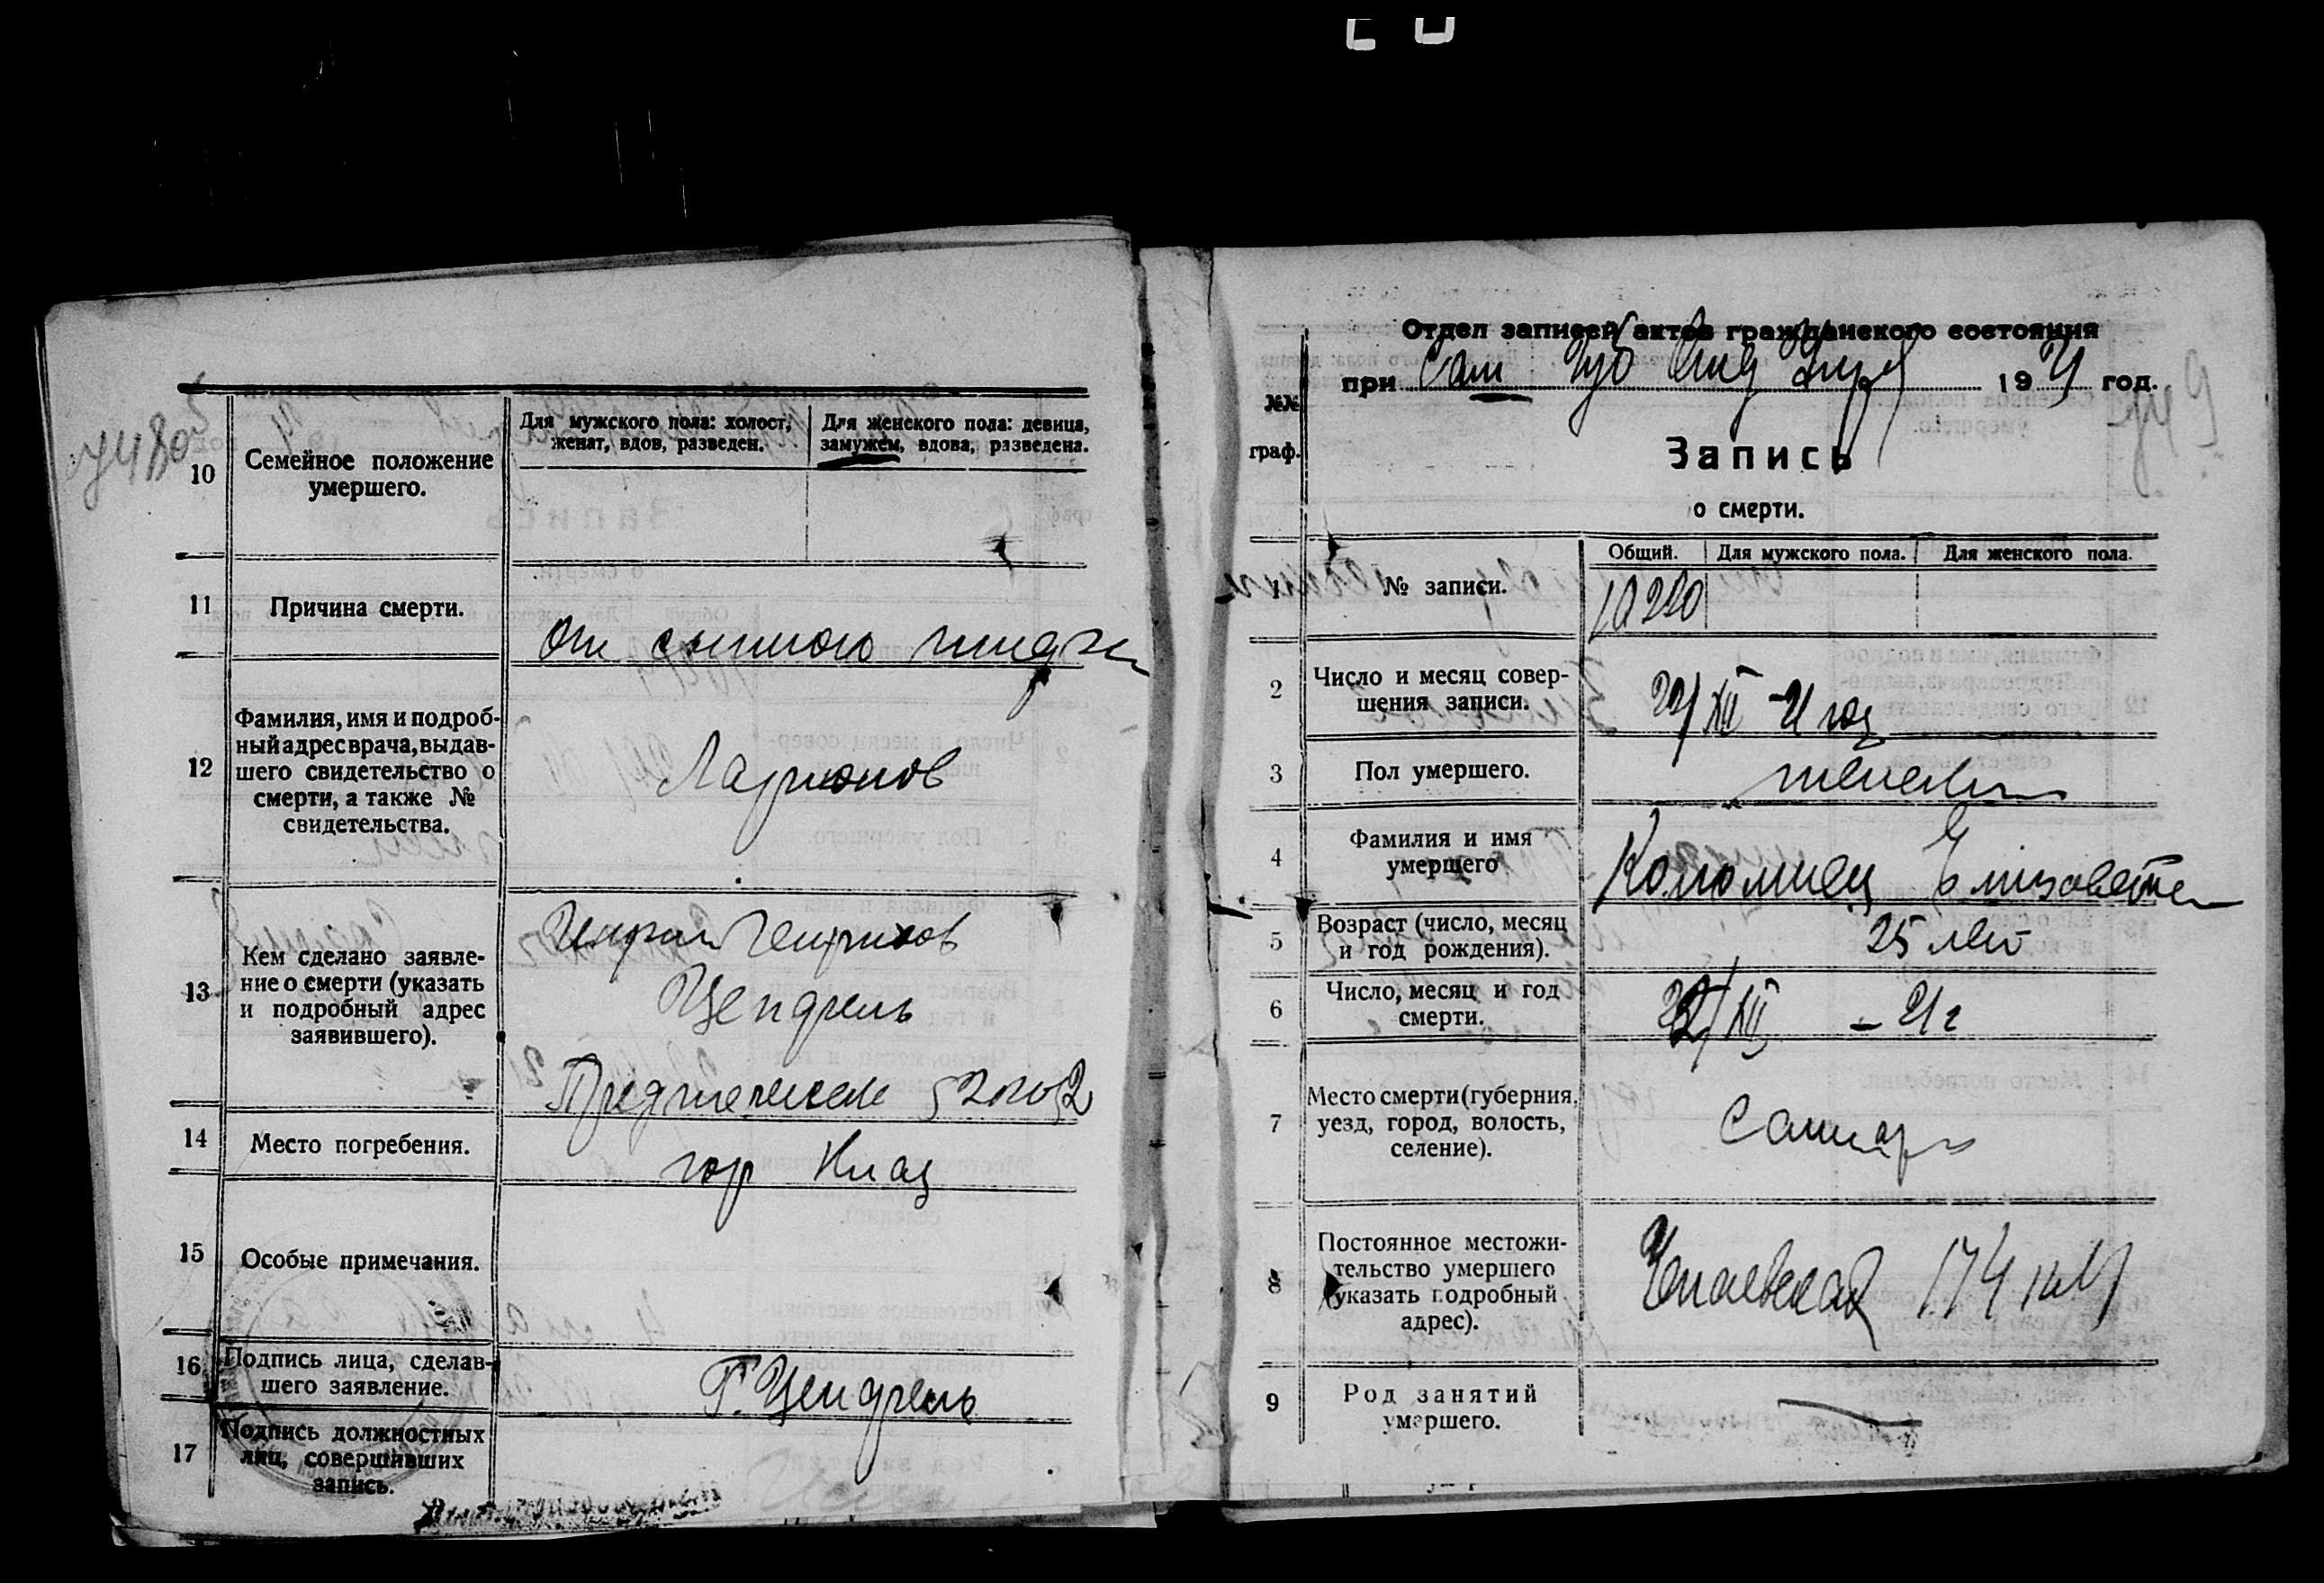 10
Семейное положение
умершего.
Для мужского пола: холост,
женат, вдов, разведен.
Для женского пола: девица,
замужем, вдова, разведена.
11
Причина смерти.
От сыпного тифа
12
Фамилия, имя и подроб-
ный адрес врача, выдав-
шего свидетельство о
смерти, а также №
свидетельства.
Ларионов
13
Кем сделано заявле-
ние о смерти (указать
и подробный адрес
заявившего).
Цендрель
14
Место погребения.
гор Клад
15
Особые примечания.
16
Подпись лица, сделав-
шего заявление.
Г. Цендрель
17
Подпись должностных
лиц, совершивших
запись.
Отдел записей актов гражданского состояния
при Сам Губ 1921 год.
№№
граф.
Запись
о смерти.
1
№ записи.
Общий.
Для мужского пола.
Для женского пола.
2
Число и месяц совер-
шения записи.
22/XII - 21 год
3
Пол умершего.
женск
4
Фамилия и имя
умершего
Коломиец Елизавета
5
Возраст (число, месяц
и год рождения).
25 лет
6
Число, месяц и год
смерти.
22/XII - 21 г
7
Место смерти (губерния,
уезд, город, волость,
селение).
Самара
8
Постоянное местожи-
тельство умершего
(указать подробный
адрес).
174
9
Род занятий
умершего.